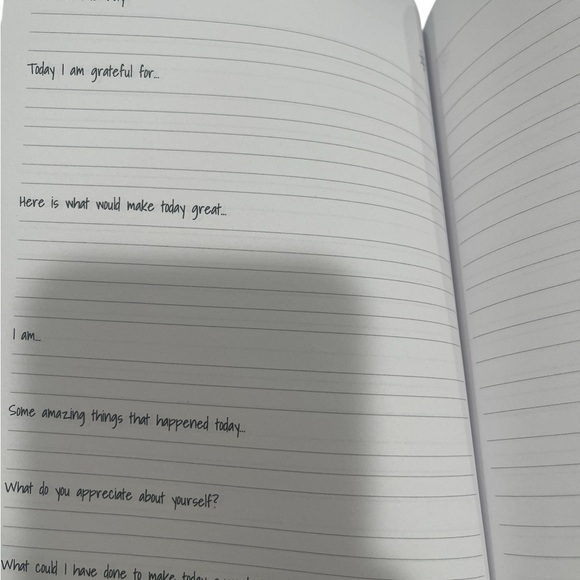 Today I am grateful for...
Here is what would make today great...
I am...
Some amazing things that happened today...
What do you appreciate about yourself?
What could I have done to make today